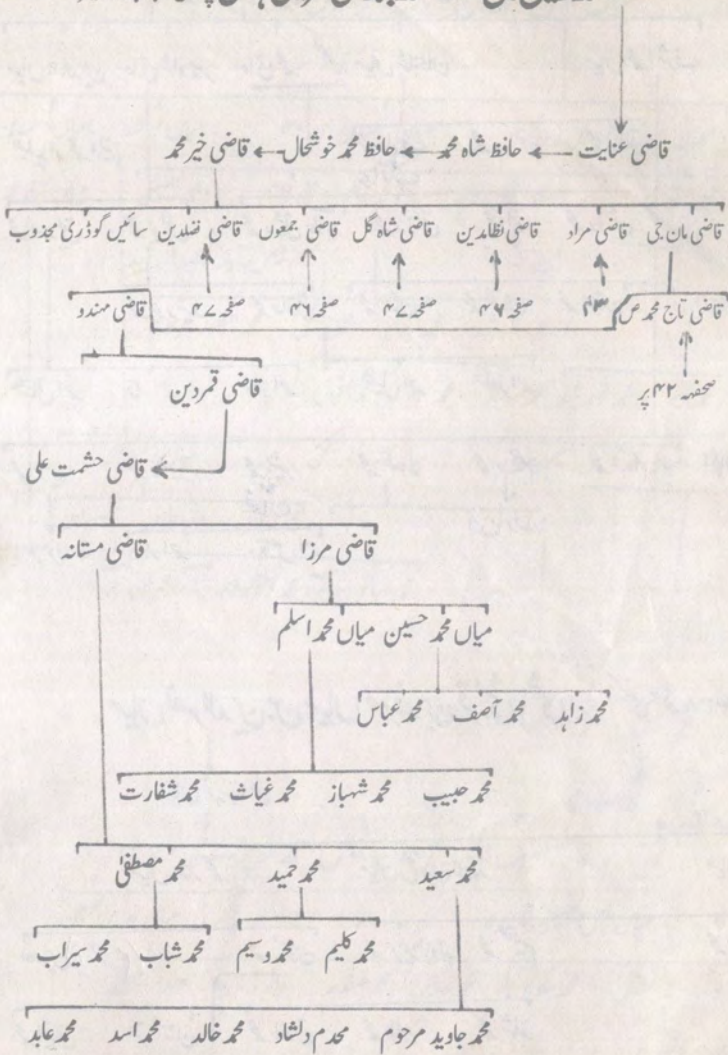 قاضی عنایت ← حافظ شاہ محمد ← حافظ محمد خوشحال ← قاضی خیر محمد
قاضی مان جی قاضی مراد قاضی نظامدین قاضی شاہ گل قاضی جمعوں قاضی فضلدین سائیں گوڈری مجذوب
قاضی تاج محمد ص ۴۳ صفحہ ۴۶ صفحہ ۴۷ صفحہ ۴۶ صفحہ ۴۷ قاضی مہندو
صحفہہ ۴۲ پر
قاضی قمردین
قاضی حشمت علی
قاضی مرزا قاضی مستانہ
میاں محمد حسین میاں محمد اسلم
محمد زاہد محمد آصف محمد عباس
محمد حبیب محمد شہباز محمد غیاث محمد شفارت
محمد سعید محمد حمید محمد مصطفیٰ
محمد کلیم محمد وسیم محمد شباب محمد سیراب
محمد جاوید مرحوم محدم دلشاد محمد خالد محمد اسد محمد عابد